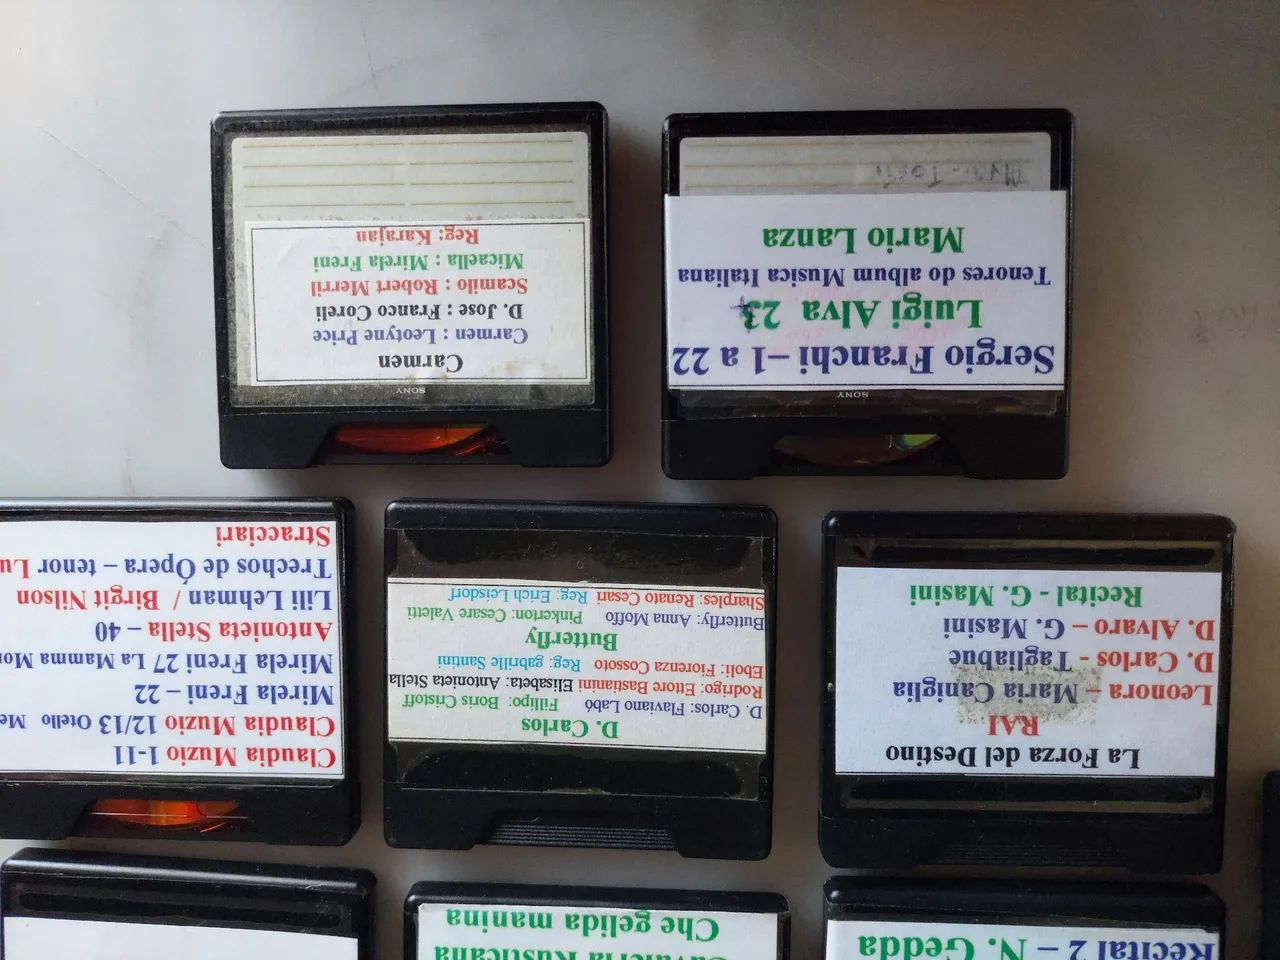 SONY
Carmen
Carmen : Leotyne Price
D. Jose : Franco Coreli
Scamilo : Robert Merril
Micaella : Mirela Freni
Reg: Karajan
SONY
Sergio Franchi – 1 a 22
Luigi Alva 23
Tenores do album Musica Italiana
Mario Lanza
Claudia Muzio 1-11
Claudia Muzio 12/13 Otello Me
Mirela Freni – 22
Mirela Freni 27 La Mamma Mo
Antonieta Stella – 40
Lili Lehman / Birgit Nilson
Trechos de Ópera – tenor Lu
Stracciari
D. Carlos
D. Carlos: Flaviano Labó Filipo: Boris Cristoff
Rodrigo: Ettore Bastianini Elisabeta: Antonieta Stella
Eboli: Fiorenza Cossoto Reg: gabrille Santini
Butterfly
Butterfly: Anna Moffo Pinkerton: Cesare Valetti
Sharples: Renato Cesari Reg: Erich Leisdorf
La Forza del Destino
RAI
Leonora – Maria Caniglia
D. Carlos - Tagliabue
D. Alvaro – G. Masini
Recital - G. Masini
Cavaleria Rusticana
Che gelida manina
Recital 2 – N. Gedda